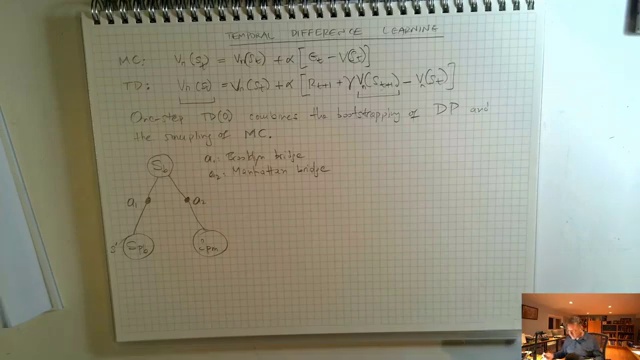 TEMPORAL DIFFERENCE LEARNING
MC: Vπ(St) = Vπ(St) + α [Gt - V(St)]
TD: Vπ(St) = Vπ(St) + α [Rt+1 + γ Vπ(St+1) - Vπ(St)]
One-step TD(0) combines the bootstrapping of DP and
the sampling of MC.
Sb
a1: Brooklyn bridge
a2: Manhattan bridge
a1
a2
s'